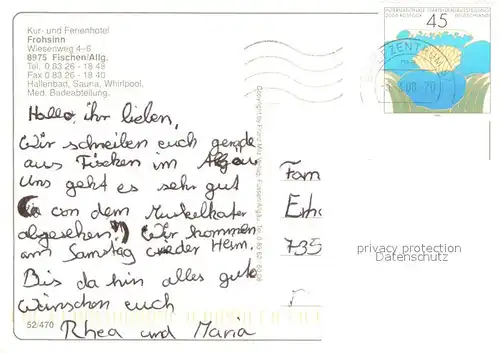 Kur- und Ferienhotel
Frohsinn
Wiesenweg 4-6
8975 Fischen/Allg.
Tel. 0 83 26 - 18 48
Fax 0 83 26 - 18 40
Hallenbad, Sauna, Whirlpool,
Med. Badeabteilung.
Hallo, ihr lieben,
Wir schreiben euch gerade
aus Fischen im Algäu
Uns geht es sehr gut
(von dem Muskelkater
abgesehen!) Wir kommen
am Samstag wieder Heim.
Bis da hin alles gute
wünschen euch
Rhea und Maria
52/470
45
INTERNATIONALE GARTENBAUAUSSTELLUNG
2003 ROSTOCK DEUTSCHLAND
BRIEFZENTRUM
Fam
Erh
735
privacy protection
Datenschutz